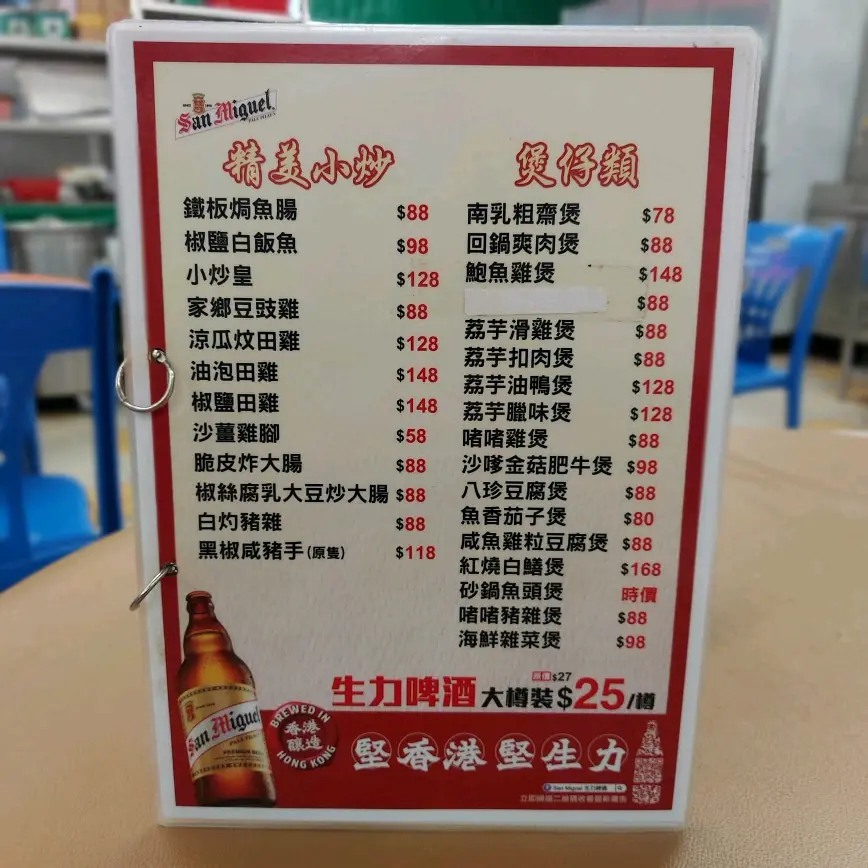 San Miguel
精美小炒
鐵板焗魚腸 $88
椒鹽白飯魚 $98
小炒皇 $128
家鄉豆豉雞 $88
涼瓜炆田雞 $128
油泡田雞 $148
椒鹽田雞 $148
沙薑雞腳 $58
脆皮炸大腸 $88
椒絲腐乳大豆炒大腸 $88
白灼豬雜 $88
黑椒咸豬手(原隻) $118
煲仔類
南乳粗齋煲 $78
回鍋爽肉煲 $88
鮑魚雞煲 $148
$88
荔芋滑雞煲 $88
荔芋扣肉煲 $88
荔芋油鴨煲 $128
荔芋臘味煲 $128
啫啫雞煲 $88
沙嗲金菇肥牛煲 $98
八珍豆腐煲 $88
魚香茄子煲 $80
咸魚雞粒豆腐煲 $88
紅燒白鱔煲 $168
砂鍋魚頭煲 時價
啫啫豬雜煲 $88
海鮮雜菜煲 $98
原價$27
生力啤酒 大樽裝$25/樽
San Miguel
BREWED IN
香港
釀造
HONG KONG
堅香港堅生力
San Miguel 生力啤酒